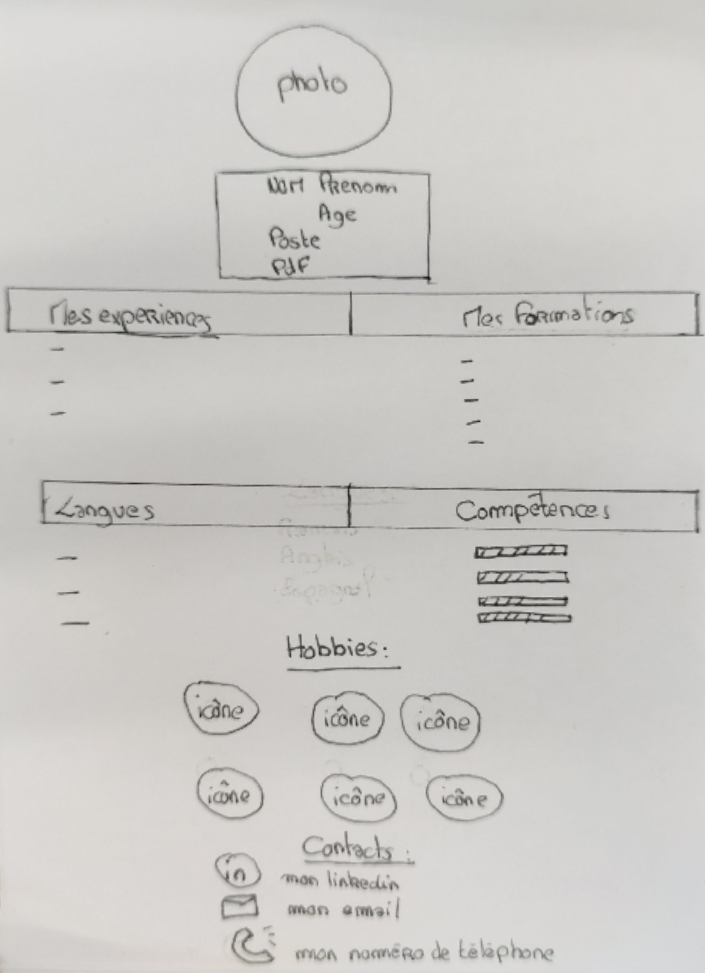 photo
Nom Prenom
Age
Poste
Pdf
Mes experiences
Mes formations
Langues
Compétences
Anglais
Espagnol
Hobbies:
icône icône icône
icône icône icône
Contacts:
in mon linkedin
mon email
mon noméro de téléphone